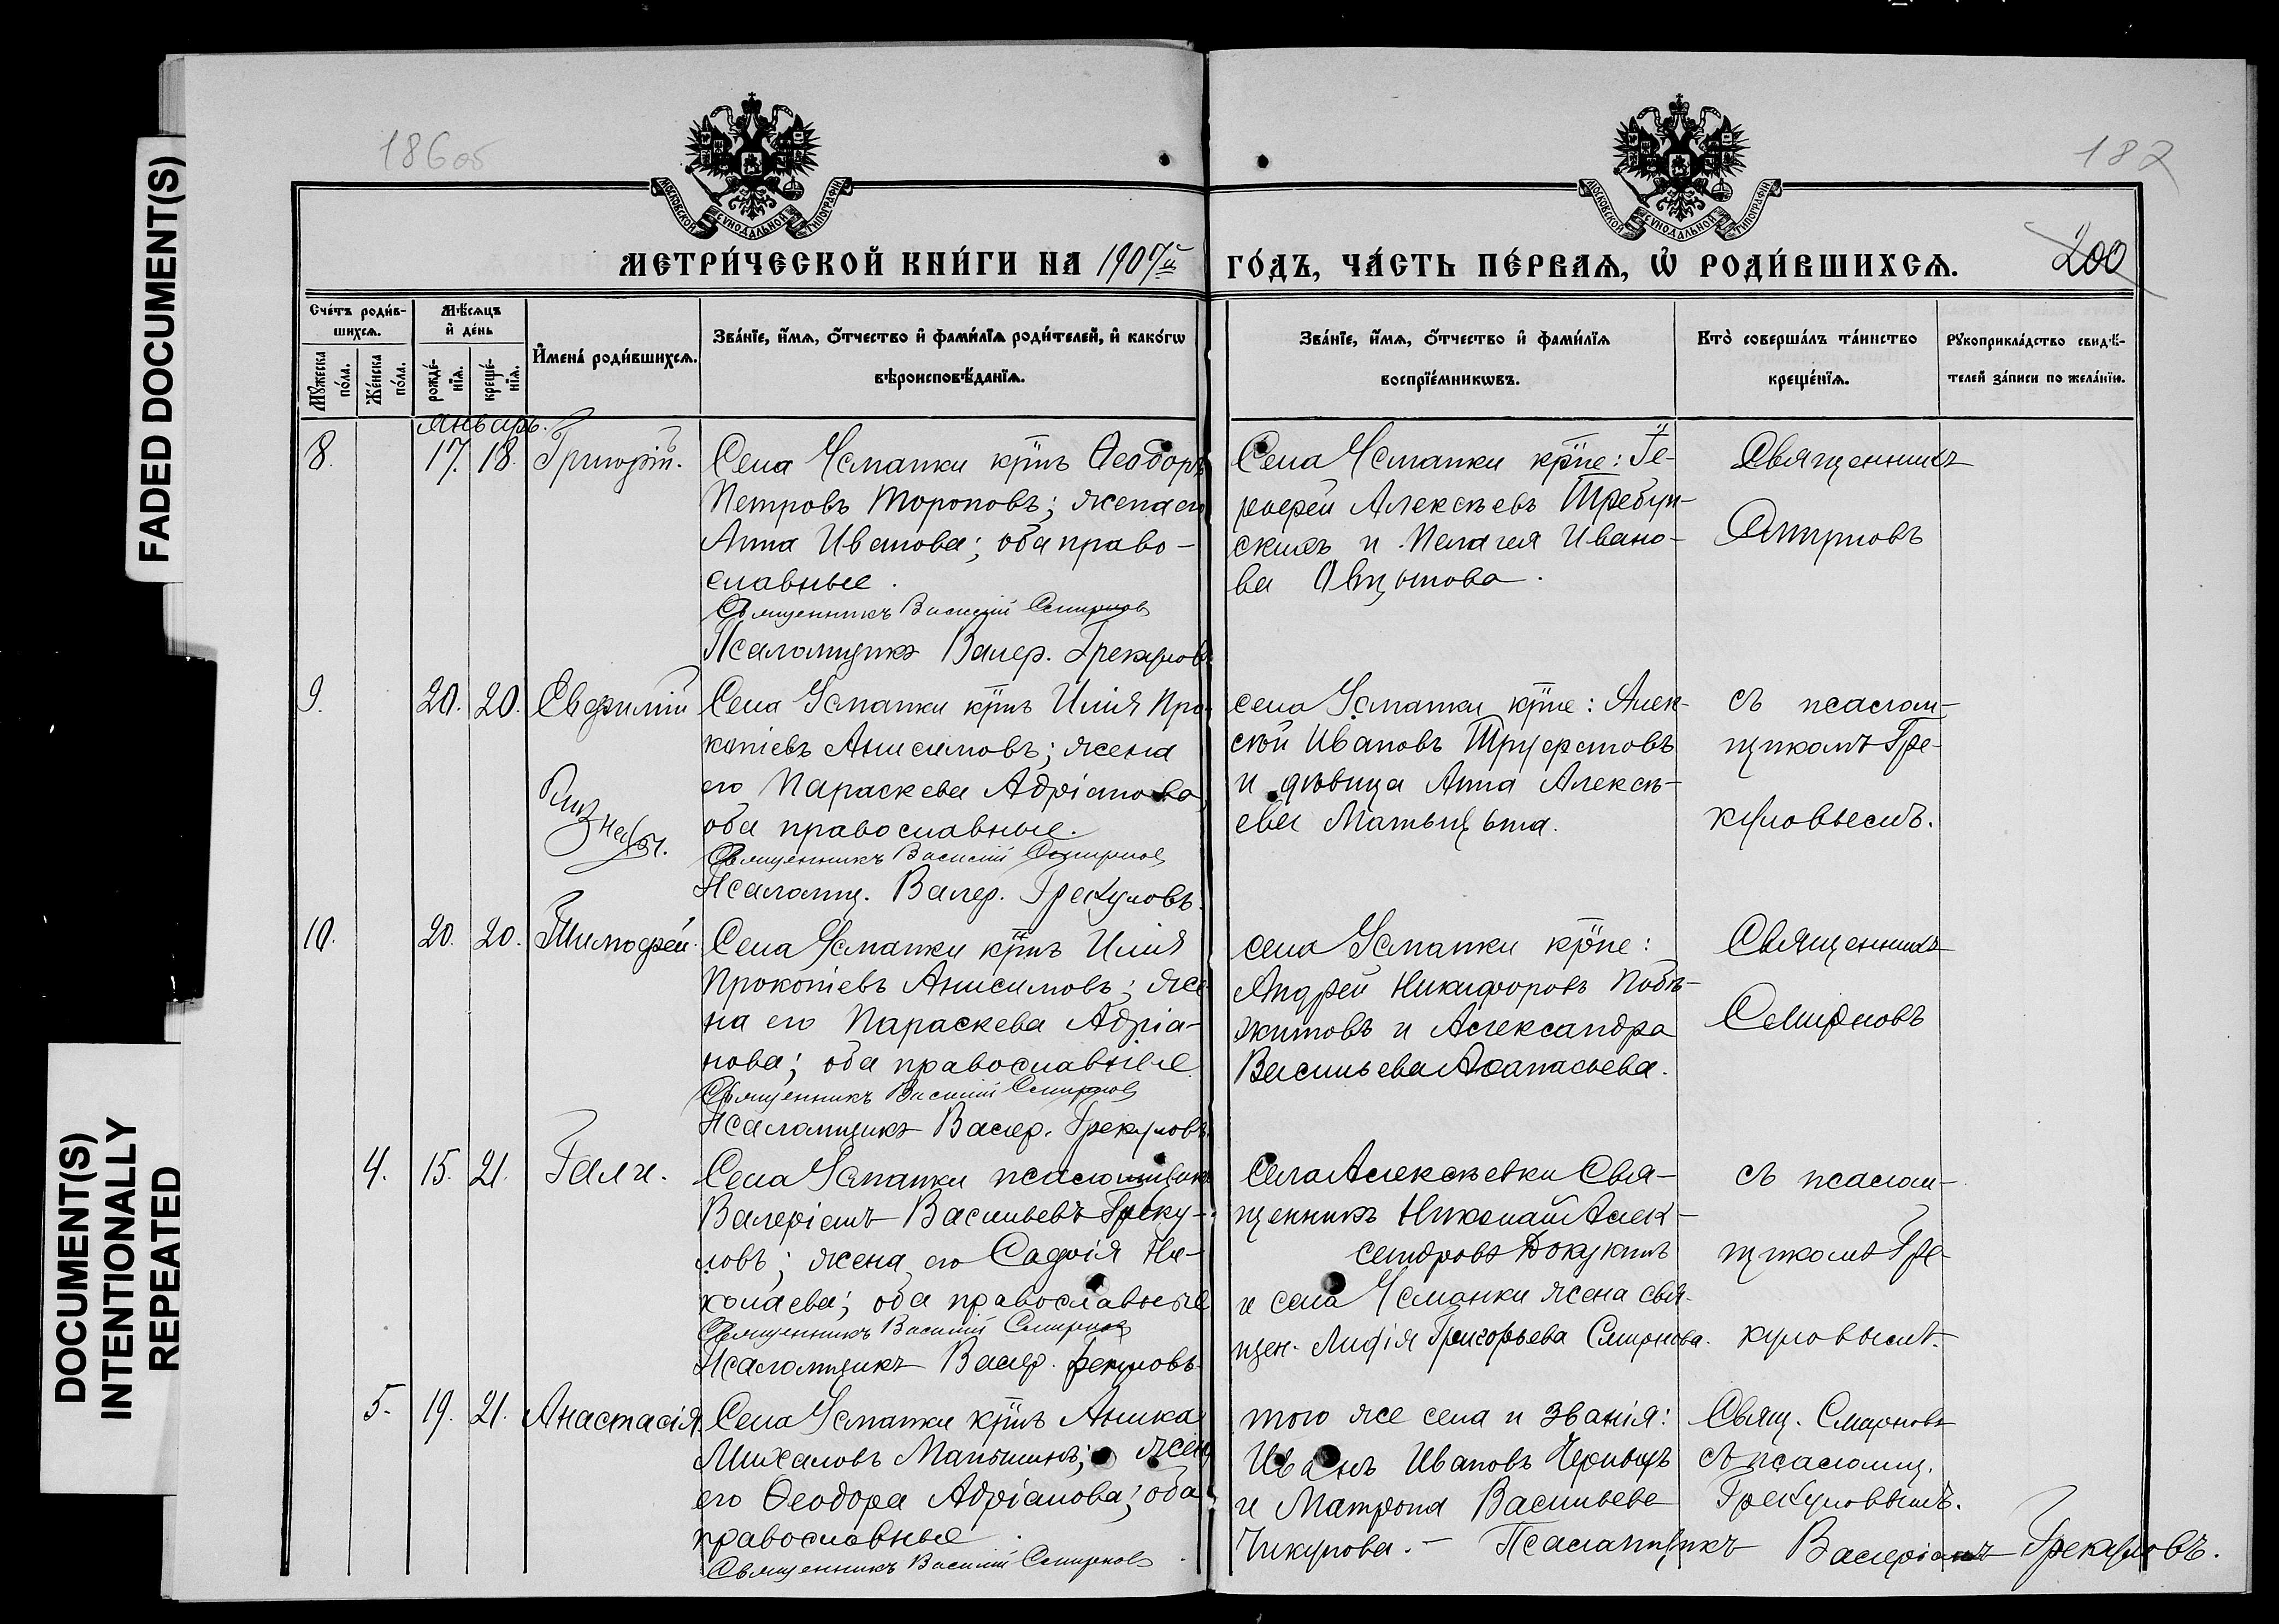 FADED DOCUMENT(S)
DOCUMENT(S)
INTENTIONALLY
REPEATED
186об
187
200
МОСКОВСКОЙ СѴНОДАЛЬНОЙ ТИПОГРАФІИ
МОСКОВСКОЙ СѴНОДАЛЬНОЙ ТИПОГРАФІИ
МЕТРИ́ЧЕСКОЙ КНИ́ГИ НА 1907й ГО́ДЪ, ЧА́СТЬ ПЕ́РВАѦ, Ѡ҆ РОДИ́ВШИХСѦ.
Сче́тъ роди́в-
шихсѧ.
Мꙋ́жеска
по́ла.
Же́нска
по́ла.
Мѣ́сѧцъ
и҆ де́нь
рожде́-
нїѧ.
креще́-
нїѧ.
И҆мена̀ роди́вшихсѧ.
Зва́нїе, и҆́мѧ, ѻ҆́тчество и҆ фами́лїѧ роди́телей, и҆ како́гѡ
вѣроисповѣ́данїѧ.
Зва́нїе, и҆́мѧ, ѻ҆́тчество и҆ фами́лїѧ
воспрїе́мникѡвъ.
Кто̀ соверша́лъ та́инство
креще́нїѧ.
Рꙋкоприкла́дство свидѣ́-
телей за́писи по жела́нїю.
Январь.
8. 17. 18. Григорій.
Села Усманки крнъ Ѳеодоръ
Петровъ Тороповъ; жена его
Анна Иванова; оба право-
славные.
Священникъ Василій Смирнов
Псаломщикъ Валер. Грекулов
Села Усманки крне:
Алексѣевъ Требун-
скихъ и Пелагея Ивано-
ва
Священникъ
Смирновъ
9. 20. 20. Евфимій
Близнецы.
Села Усманки крнъ Илія Про-
копіевъ Анисимовъ; жена
его Параскева Адріанова
оба православные.
Священникъ Василій Смирнов
Псаломщ. Валер. Грекуловъ.
села Усманки крне: Алек-
сѣй Ивановъ Труфановъ
и дѣвица Анна Алексѣ-
ева Матыцына.
съ псалом-
щикомъ Гре-
куловымъ.
10. 20. 20. Тимофей.
Села Усманки крнъ Илія
Прокопіевъ Анисимовъ; же
на его Параскева Адріа-
нова; оба православные
Священникъ Василій Смирнов
Псаломщикъ Валер. Грекуловъ
села Усманки крне:
Андрей Никифоровъ Побѣ-
жимовъ и Александра
Васильева Аѳанасьева.
Священникъ
Смирновъ
4. 15. 21. Галя.
Села Усманки псаломщикъ
Валеріанъ Васильевъ Греку-
ловъ; жена его Софія Ни-
колаева; оба православные
Священникъ Василій Смирнов
Псаломщикъ Валер. Грекуловъ
Села Алексѣевки Свя-
щенникъ Николай Алек-
сандровъ Докукинъ
и села Усманки жена свя-
щен. Лидія Григорьева Смирнова.
съ псалом-
щикомъ Гре-
куловымъ.
5. 19. 21. Анастасія.
Села Усманки крнъ Аника
Михаловъ Маньшинъ; жена
его Ѳеодора Адріанова; оба
православные.
Священникъ Василій Смирновъ
того же села и званія:
Иванъ Ивановъ
и Матрона Васильева
Чикунова. – Псаломщикъ Валеріанъ Грекуловъ.
Свящ. Смирновъ
съ псаломщ.
Грекуловымъ.